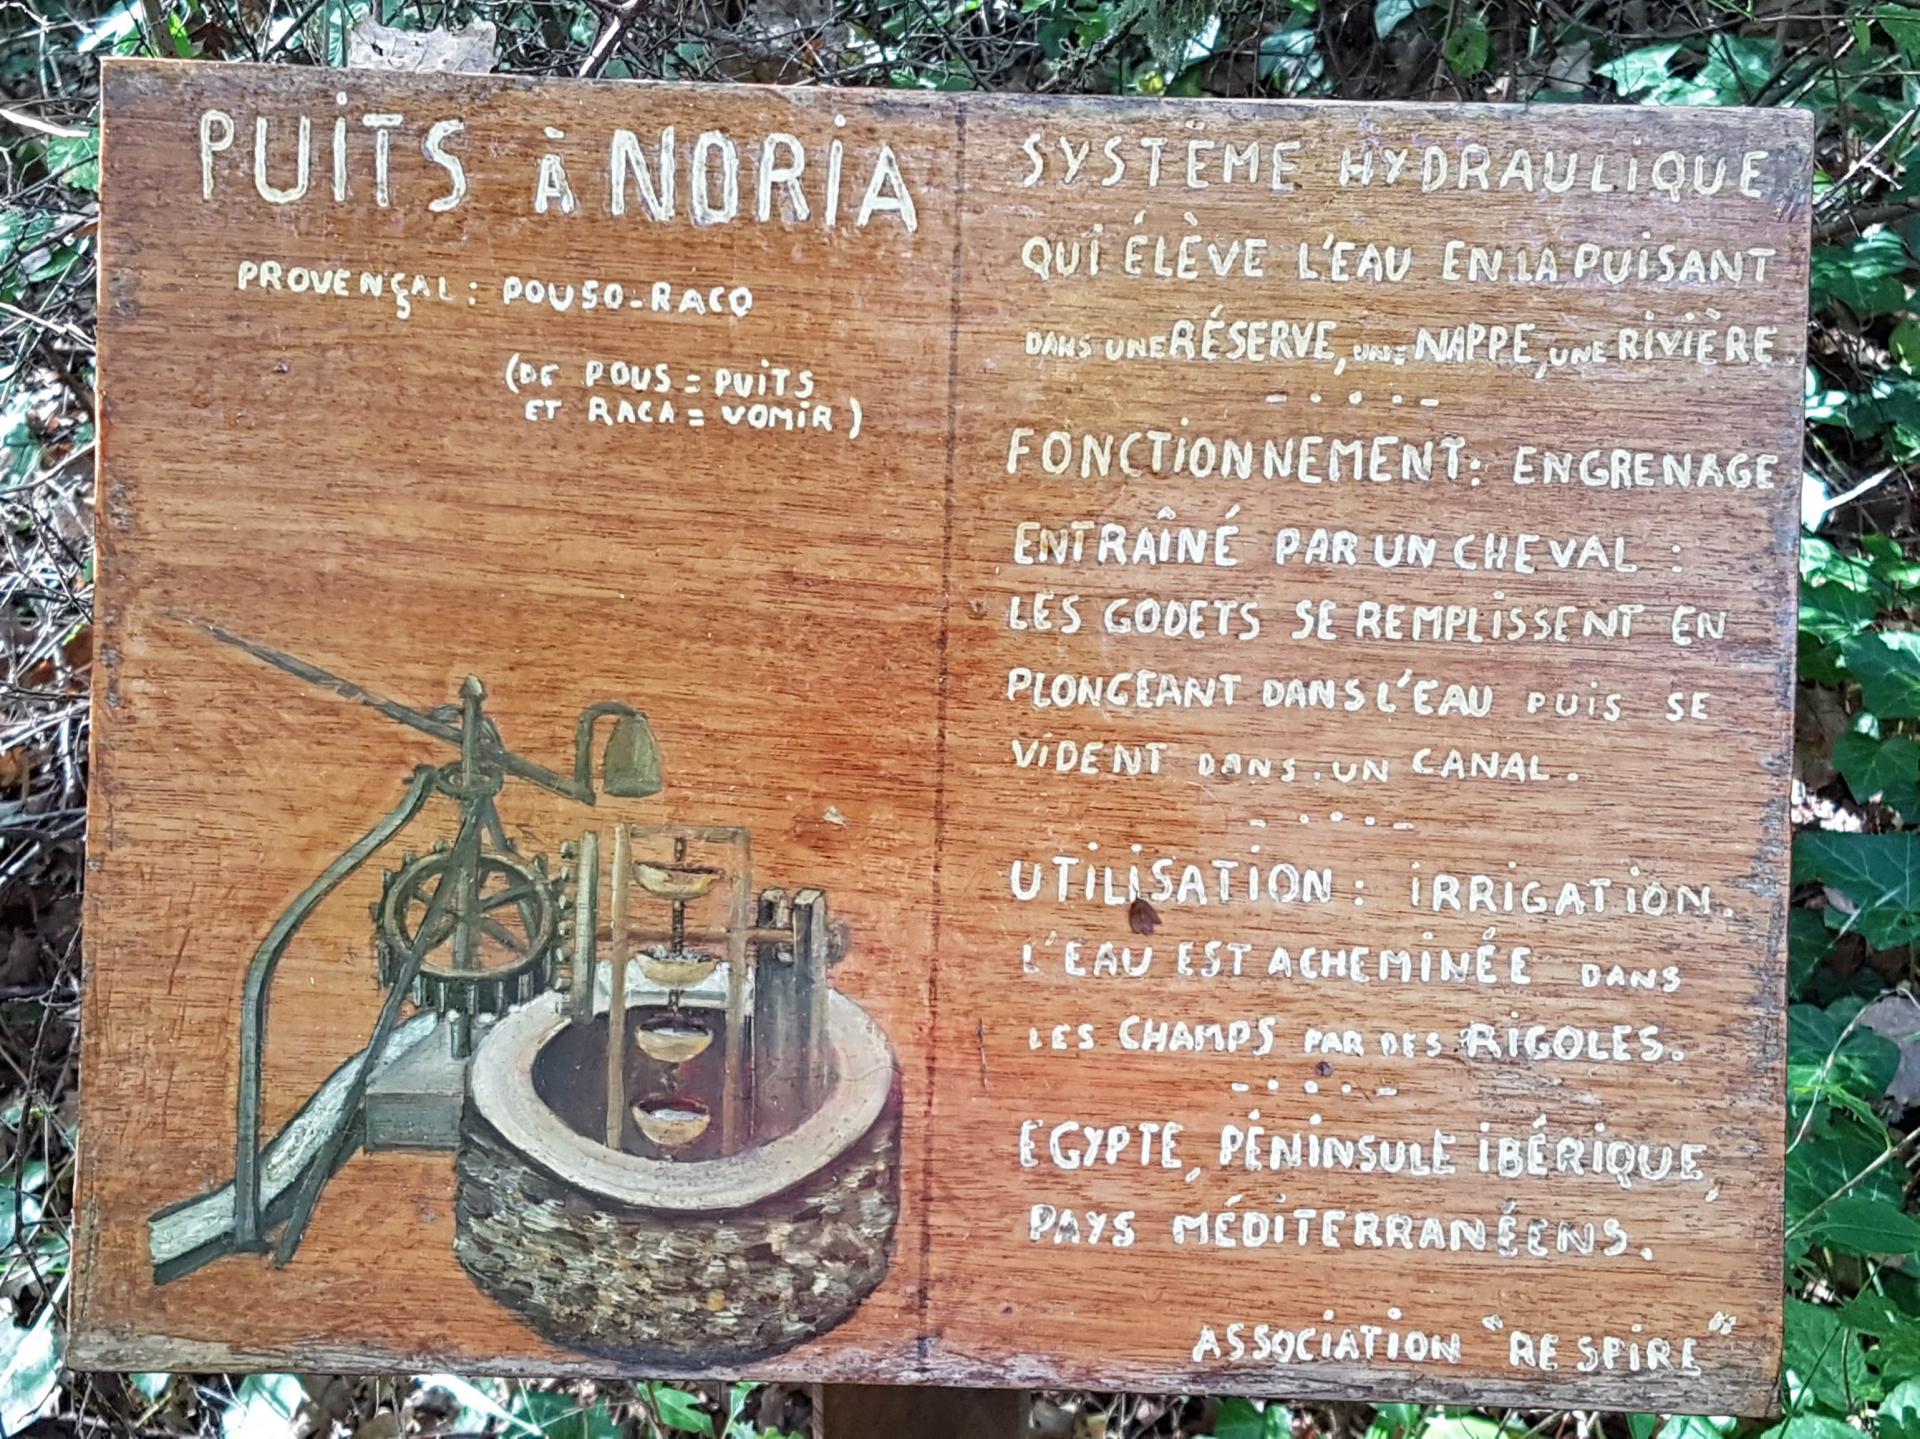 PUITS À NORIA
PROVENÇAL : POUSO-RACO
(DE POUS = PUITS
ET RACA = VOMIR)
SYSTÈME HYDRAULIQUE
QUI ÉLÈVE L'EAU EN LA PUISANT
DANS UNE RÉSERVE, UNE NAPPE, UNE RIVIÈRE.
FONCTIONNEMENT : ENGRENAGE
ENTRAÎNÉ PAR UN CHEVAL :
LES GODETS SE REMPLISSENT EN
PLONGEANT DANS L'EAU PUIS SE
VIDENT DANS UN CANAL.
UTILISATION : IRRIGATION.
L'EAU EST ACHEMINÉE DANS
LES CHAMPS PAR DES RIGOLES.
EGYPTE, PÉNINSULE IBÉRIQUE,
PAYS MÉDITERRANÉENS.
ASSOCIATION "RE SPIRE"